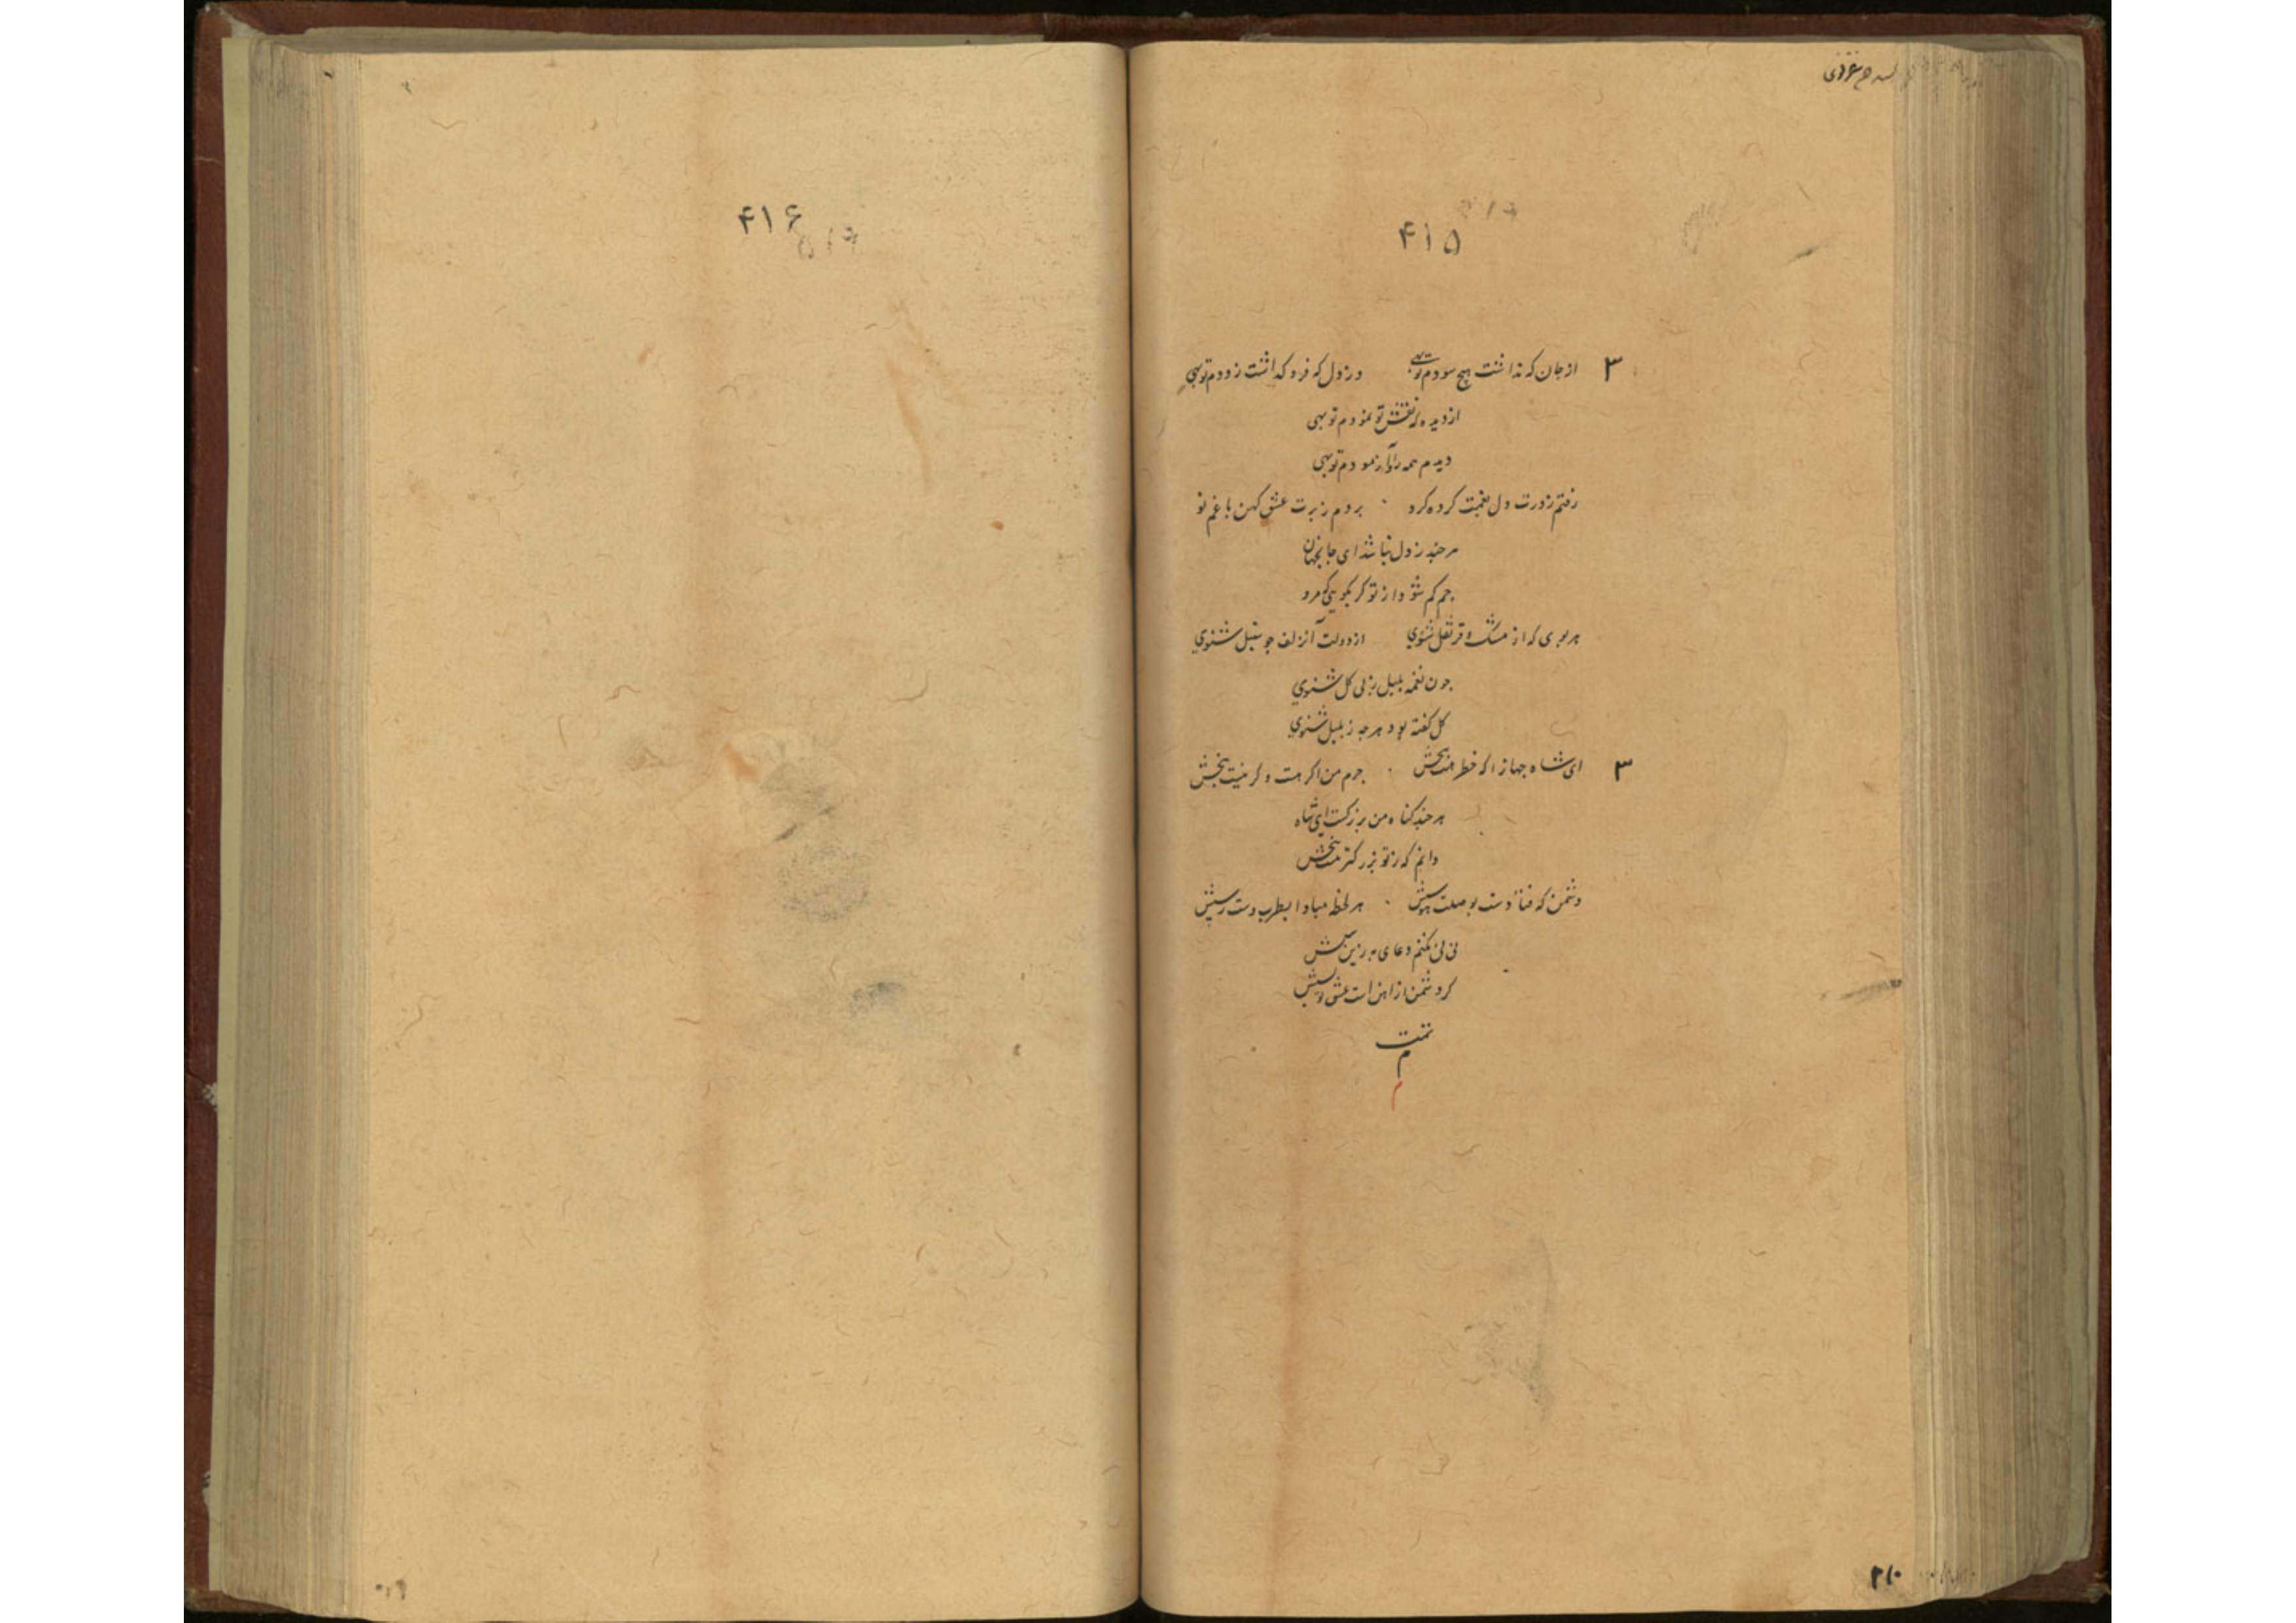 ۴۱۵
۳ از جان که نداشت هیچ سودم تو بهی در دل که فرو گذاشت زودم تو بهی
از دیده که نقش تو نمودم تو بهی
دیدم همه را آزمودم تو بهی
رفتم ز درت دل بغمت کرده کرو بردم ز برت عشق کهن با غم نو
هر چند ز دل نباشد ای جان جهان
کم شود از تو کر بکویی که مرو
هر بوی که از مشک و قرنفل شنوی از دولت آن زلف جو سنبل شنوی
جون نغمه بلبل ز پی کل شنوی
کل کفته بود هر جه ز بلبل شنوی
۳ ای شاه جهان جرم من ار هست و کر نیست ببخش
هر چند کناه من بزرکست ای شاه
دانم که ز تو بزرکتر هست ببخش
دشمن که فتادست بوصلت هوسش هر لحظه مبادا بطرب دست رسش
نی نی نکنم دعای بد زین سپسش
کر دشمن از آهن است عشق تو بسش
تمت
م
۴۱۶
۲۱۰